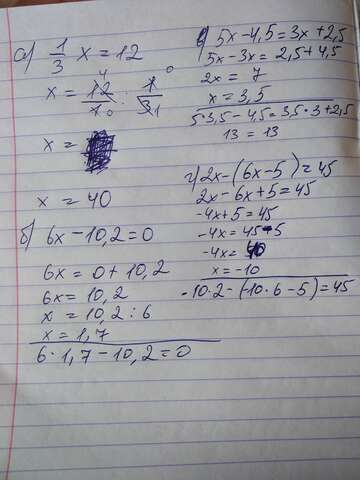 а) 1/3 x = 12
x = 12/10 : 1/31
x =
x = 40
б) 6x - 10,2 = 0
6x = 0 + 10,2
6x = 10,2
x = 10,2 : 6
x = 1,7
6 · 1,7 - 10,2 = 0
в) 5x - 4,5 = 3x + 2,5
5x - 3x = 2,5 + 4,5
2x = 7
x = 3,5
5 · 3,5 - 4,5 = 3,5 · 3 + 2,5
13 = 13
г) 2x - (6x - 5) = 45
2x - 6x + 5 = 45
-4x + 5 = 45
-4x = 45 - 5
-4x = 40
x = -10
-10 · 2 - (-10 · 6 - 5) = 45